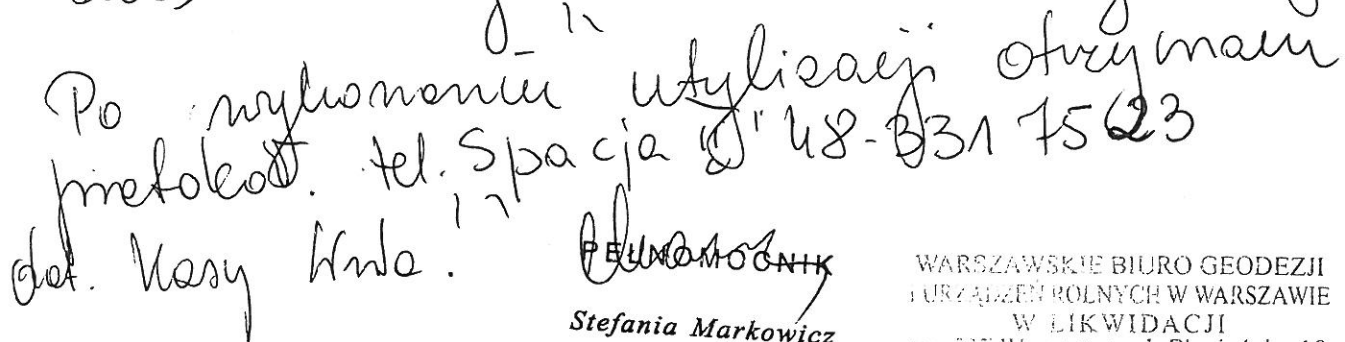 Po wykonaniu utylizacji otrzymam
protokół. tel. Spacja "J" 48-331 75 23
dot. Kasy
PEŁNOMOCNIK
Stefania Markowicz
WARSZAWSKIE BIURO GEODEZJI
I URZĄDZEŃ ROLNYCH W WARSZAWIE
W LIKWIDACJI